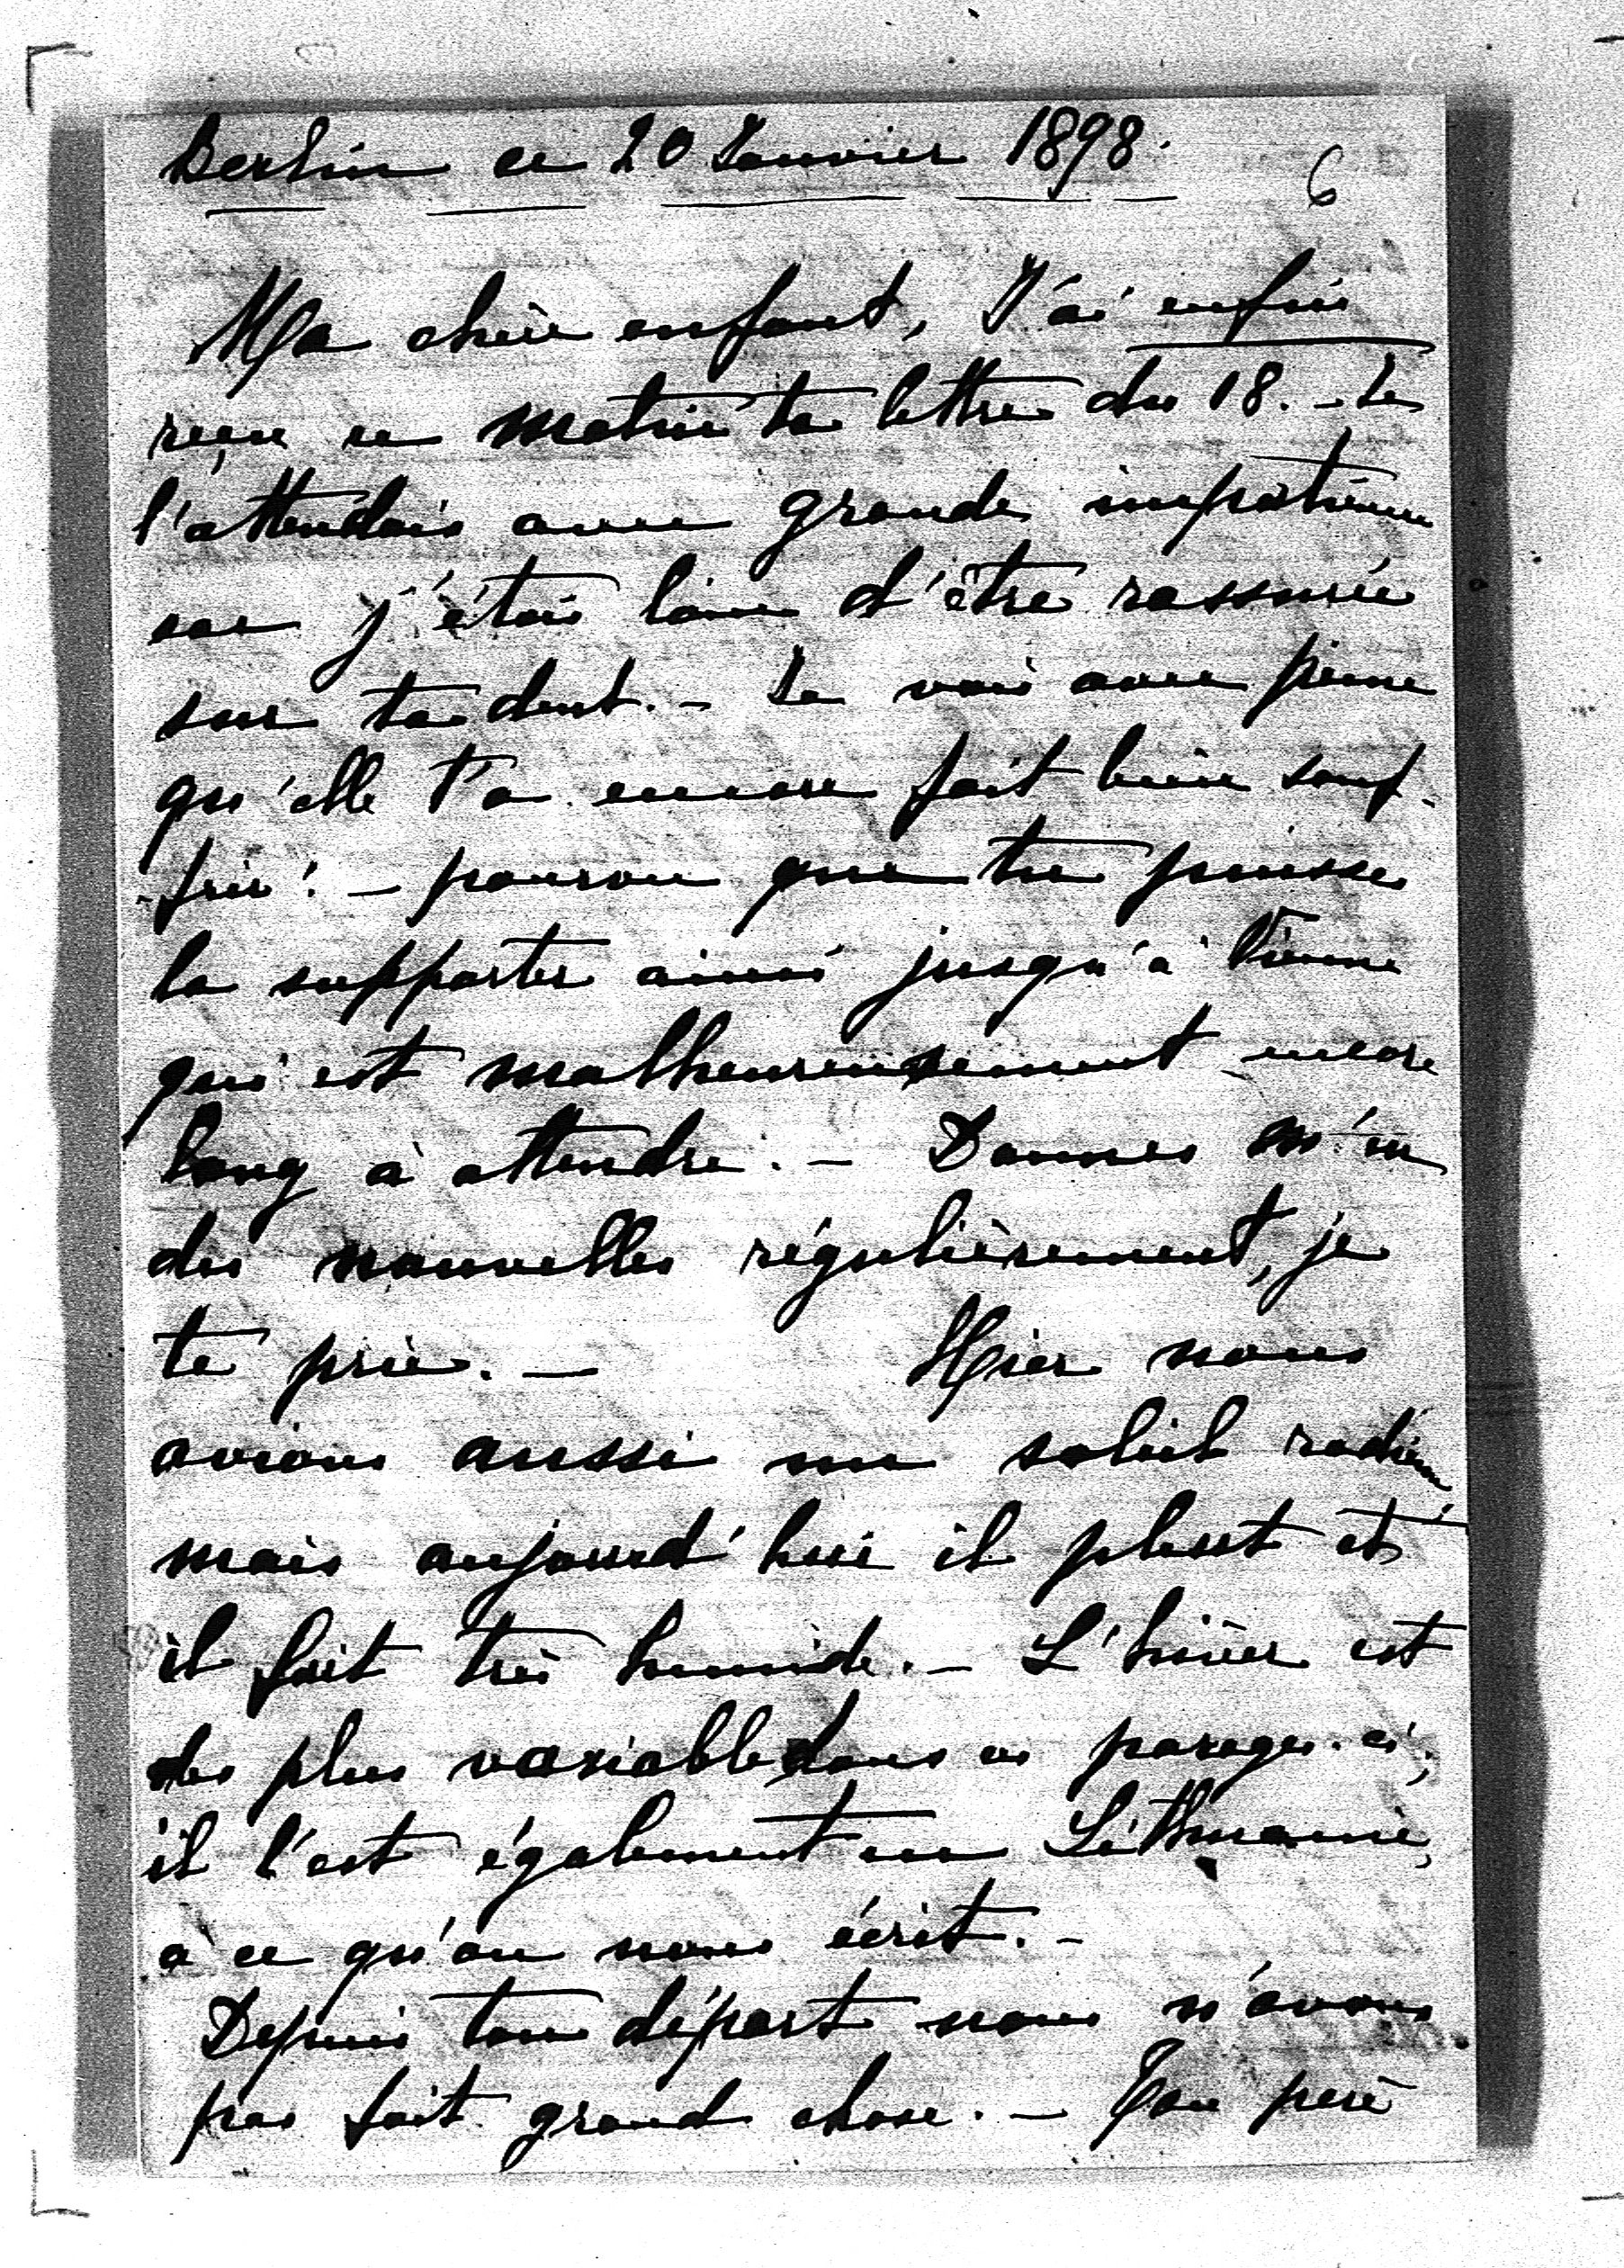 Berlin ce 20 Janvier 1898.
6
Ma chère enfant, J'ai enfin
reçu ce matin ta lettre du 18. – Je
l'attendais avec grande impatience
car j'étais loin d'être rassurée
sur ta dent. – Je vois avec peine
qu'elle t'a encore fait bien souf-
-frir! – pourvu que tu puisses
la supporter ainsi jusqu'à Vienne
qui est malheureusement encore
long à attendre. – Donnes m'en
des nouvelles régulièrement, je
te prie. – Hier nous
avions aussi un soleil radieux
mais aujourd'hui il pleut et
il fait très humide. – L'hiver est
des plus variable dans ces parages-ci,
il l'est également en Lithuanie,
à ce qu'on nous écrit. –
Depuis ton départ nous n'avons
pas fait grand chose. – Ton père